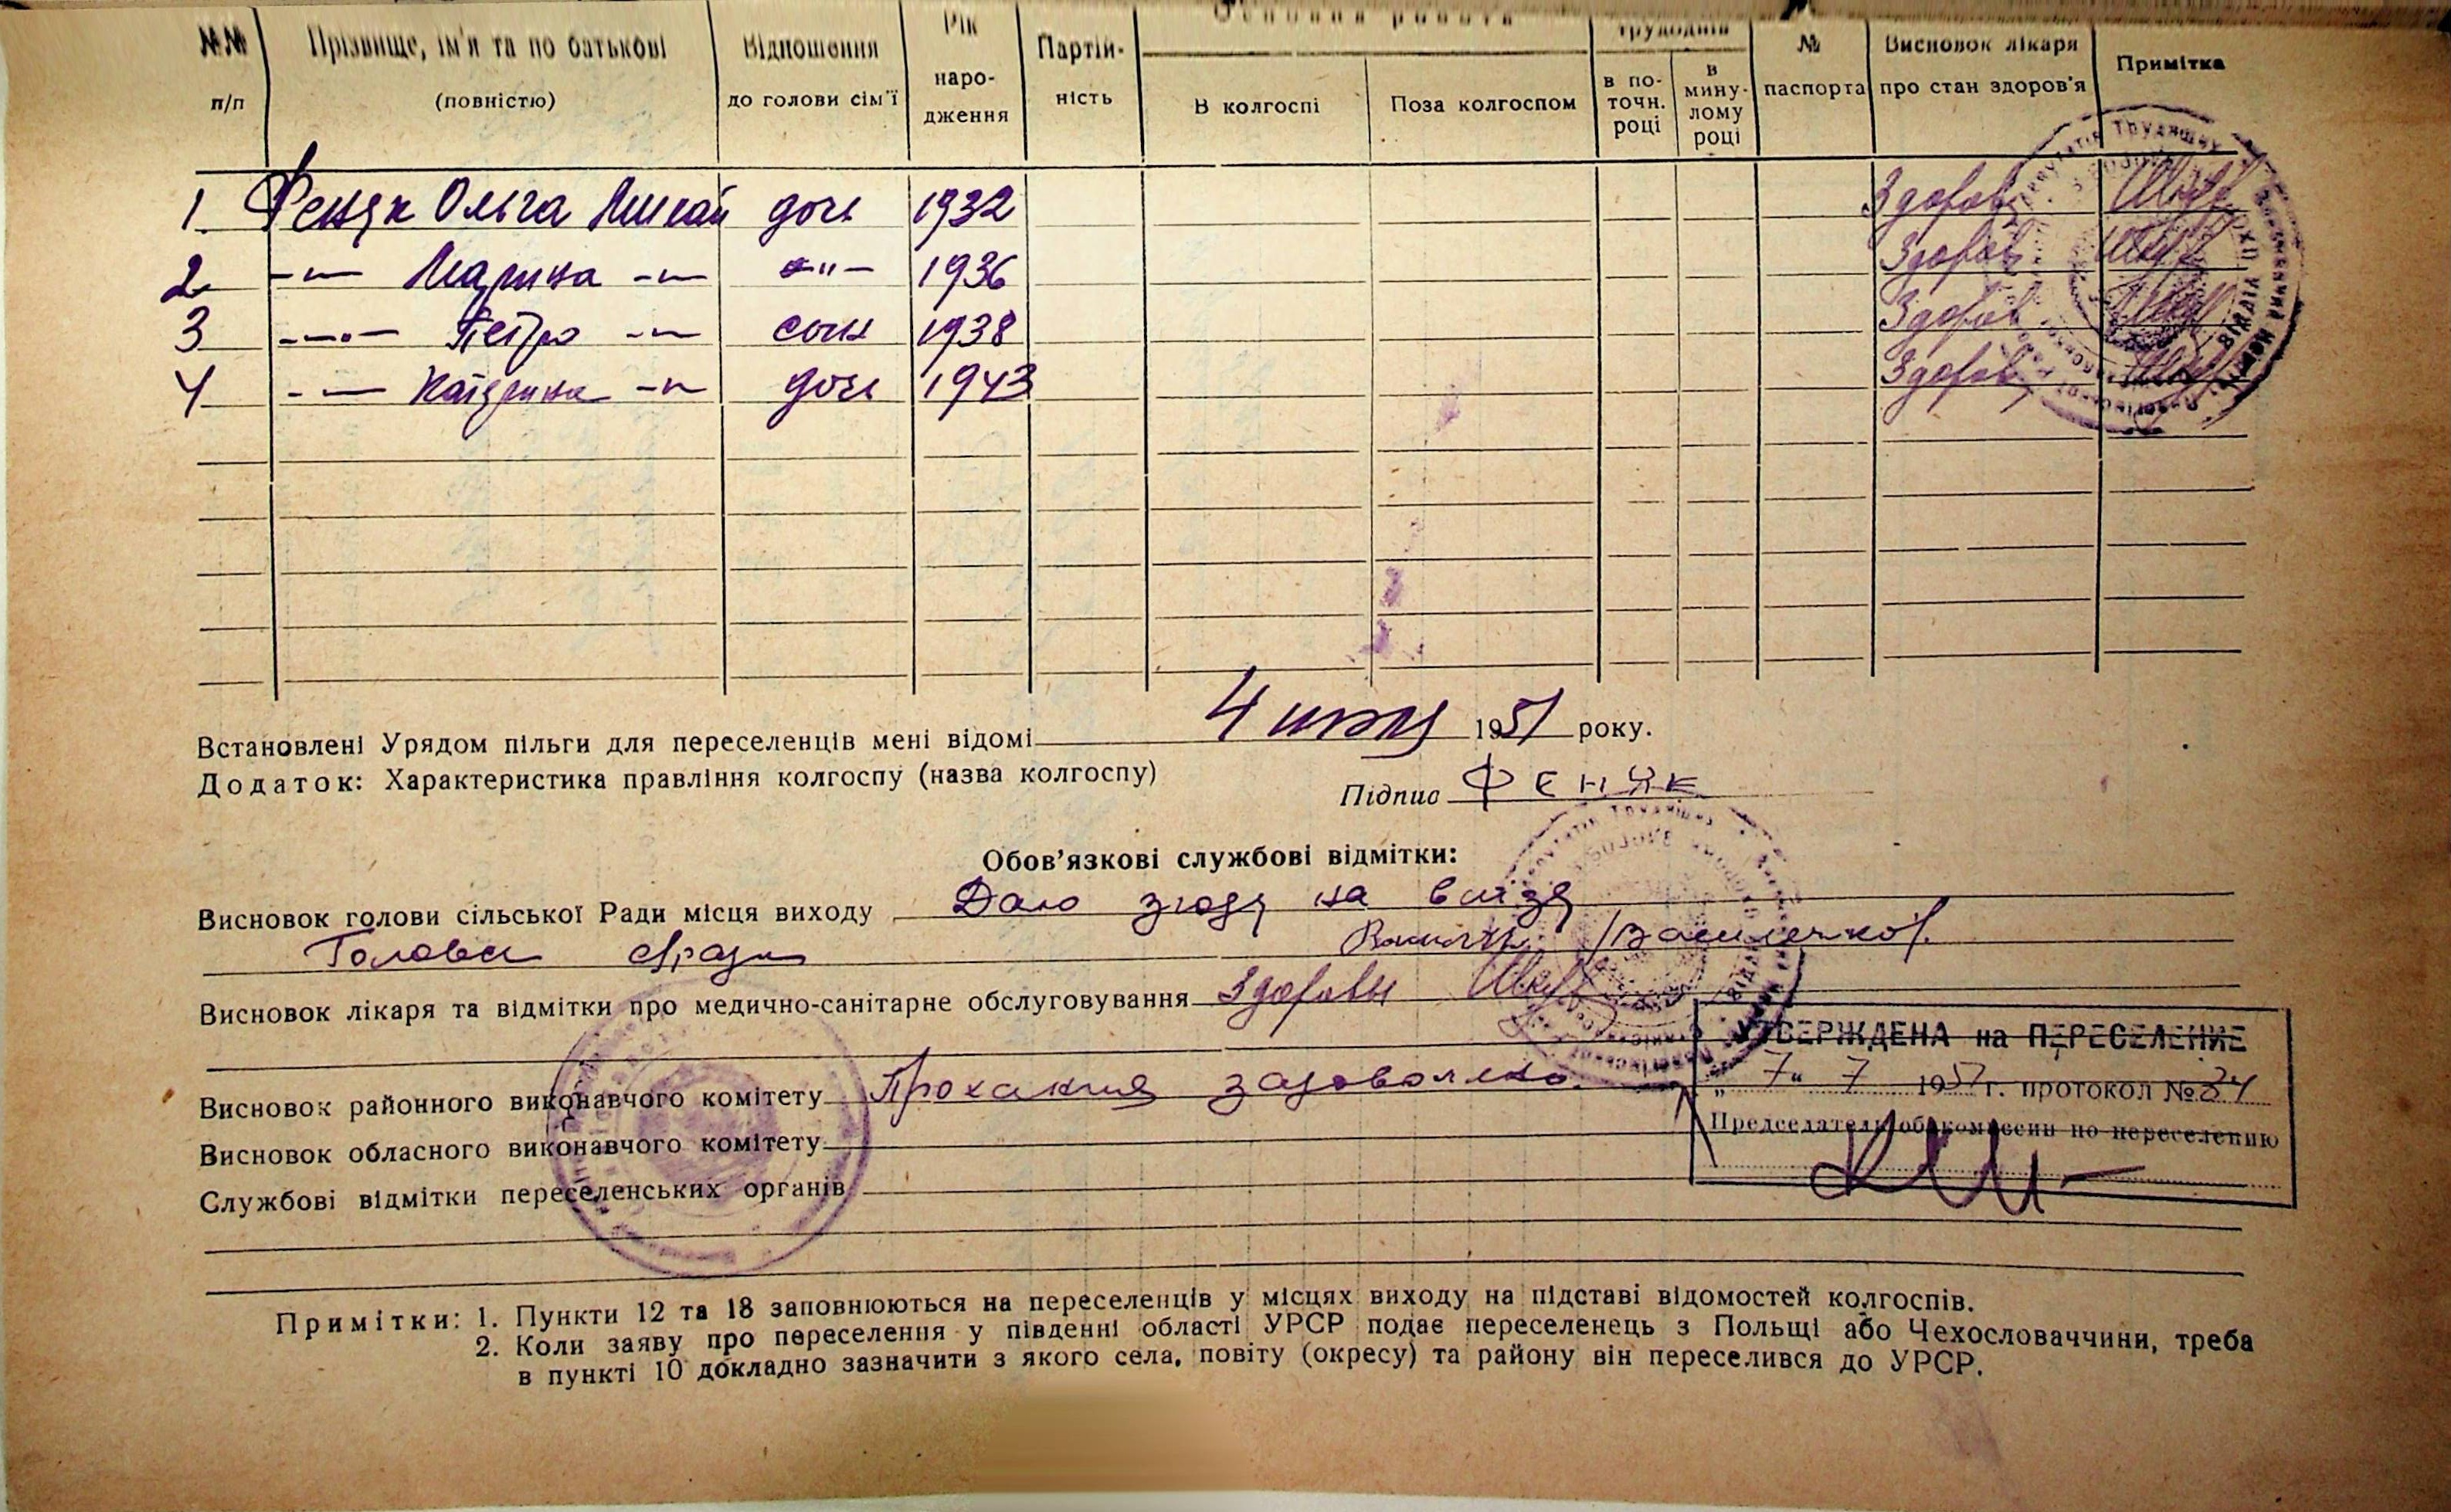 Основна робота
№№ п/п Прізвище, ім'я та по батькові (повністю) Відношення до голови сім'ї Рік народження Партійність В колгоспі Поза колгоспом трудоднів в поточн. році в минулому році № паспорта Висновок лікаря про стан здоров'я Примітка
1. Феняк Ольга Михай дочь 1932 Здорова
2 -"- Марина -"- -"- 1936 Здорова
3 -"- Петро -"- сын 1938 Здоров
4 -"- Катерина -"- дочь 1943 Здорова
Встановлені Урядом пільги для переселенців мені відомі 4 июля 1951 року.
Додаток: Характеристика правління колгоспу (назва колгоспу)
Підпис ФЕНЯК
Обов'язкові службові відмітки:
Висновок голови сільської Ради місця виходу Даю згоду на виїзд
Голова с/ради /Василечко/.
Висновок лікаря та відмітки про медично-санітарне обслуговування Здоровы
УТВЕРЖДЕНА на ПЕРЕСЕЛЕНИЕ
Висновок районного виконавчого комітету Прохання задоволено.
„ 7 " 7 1951 г. протокол № 24
Председатель облкомиссии по переселению
Висновок обласного виконавчого комітету
Службові відмітки переселенських органів
Примітки: 1. Пункти 12 та 18 заповнюються на переселенців у місцях виходу на підставі відомостей колгоспів.
2. Коли заяву про переселення у південні області УРСР подає переселенець з Польщі або Чехословаччини, треба
в пункті 10 докладно зазначити з якого села, повіту (окресу) та району він переселився до УРСР.